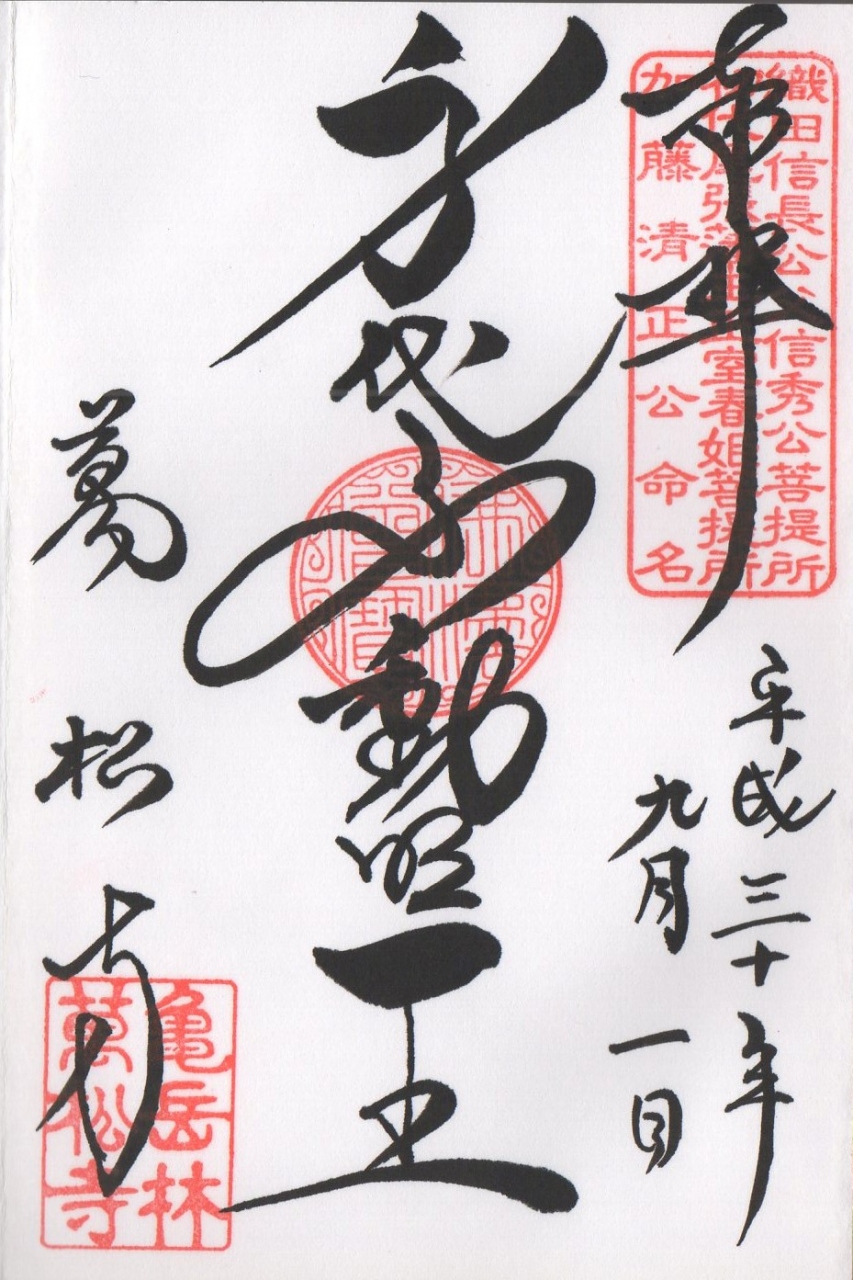 奉拝
織田信長公父信秀公菩提所
初代尾張藩主正室春姫菩提所
加藤清正公命名
平成三十年
九月一日
身代不動明王
萬松寺
亀岳林
萬松寺